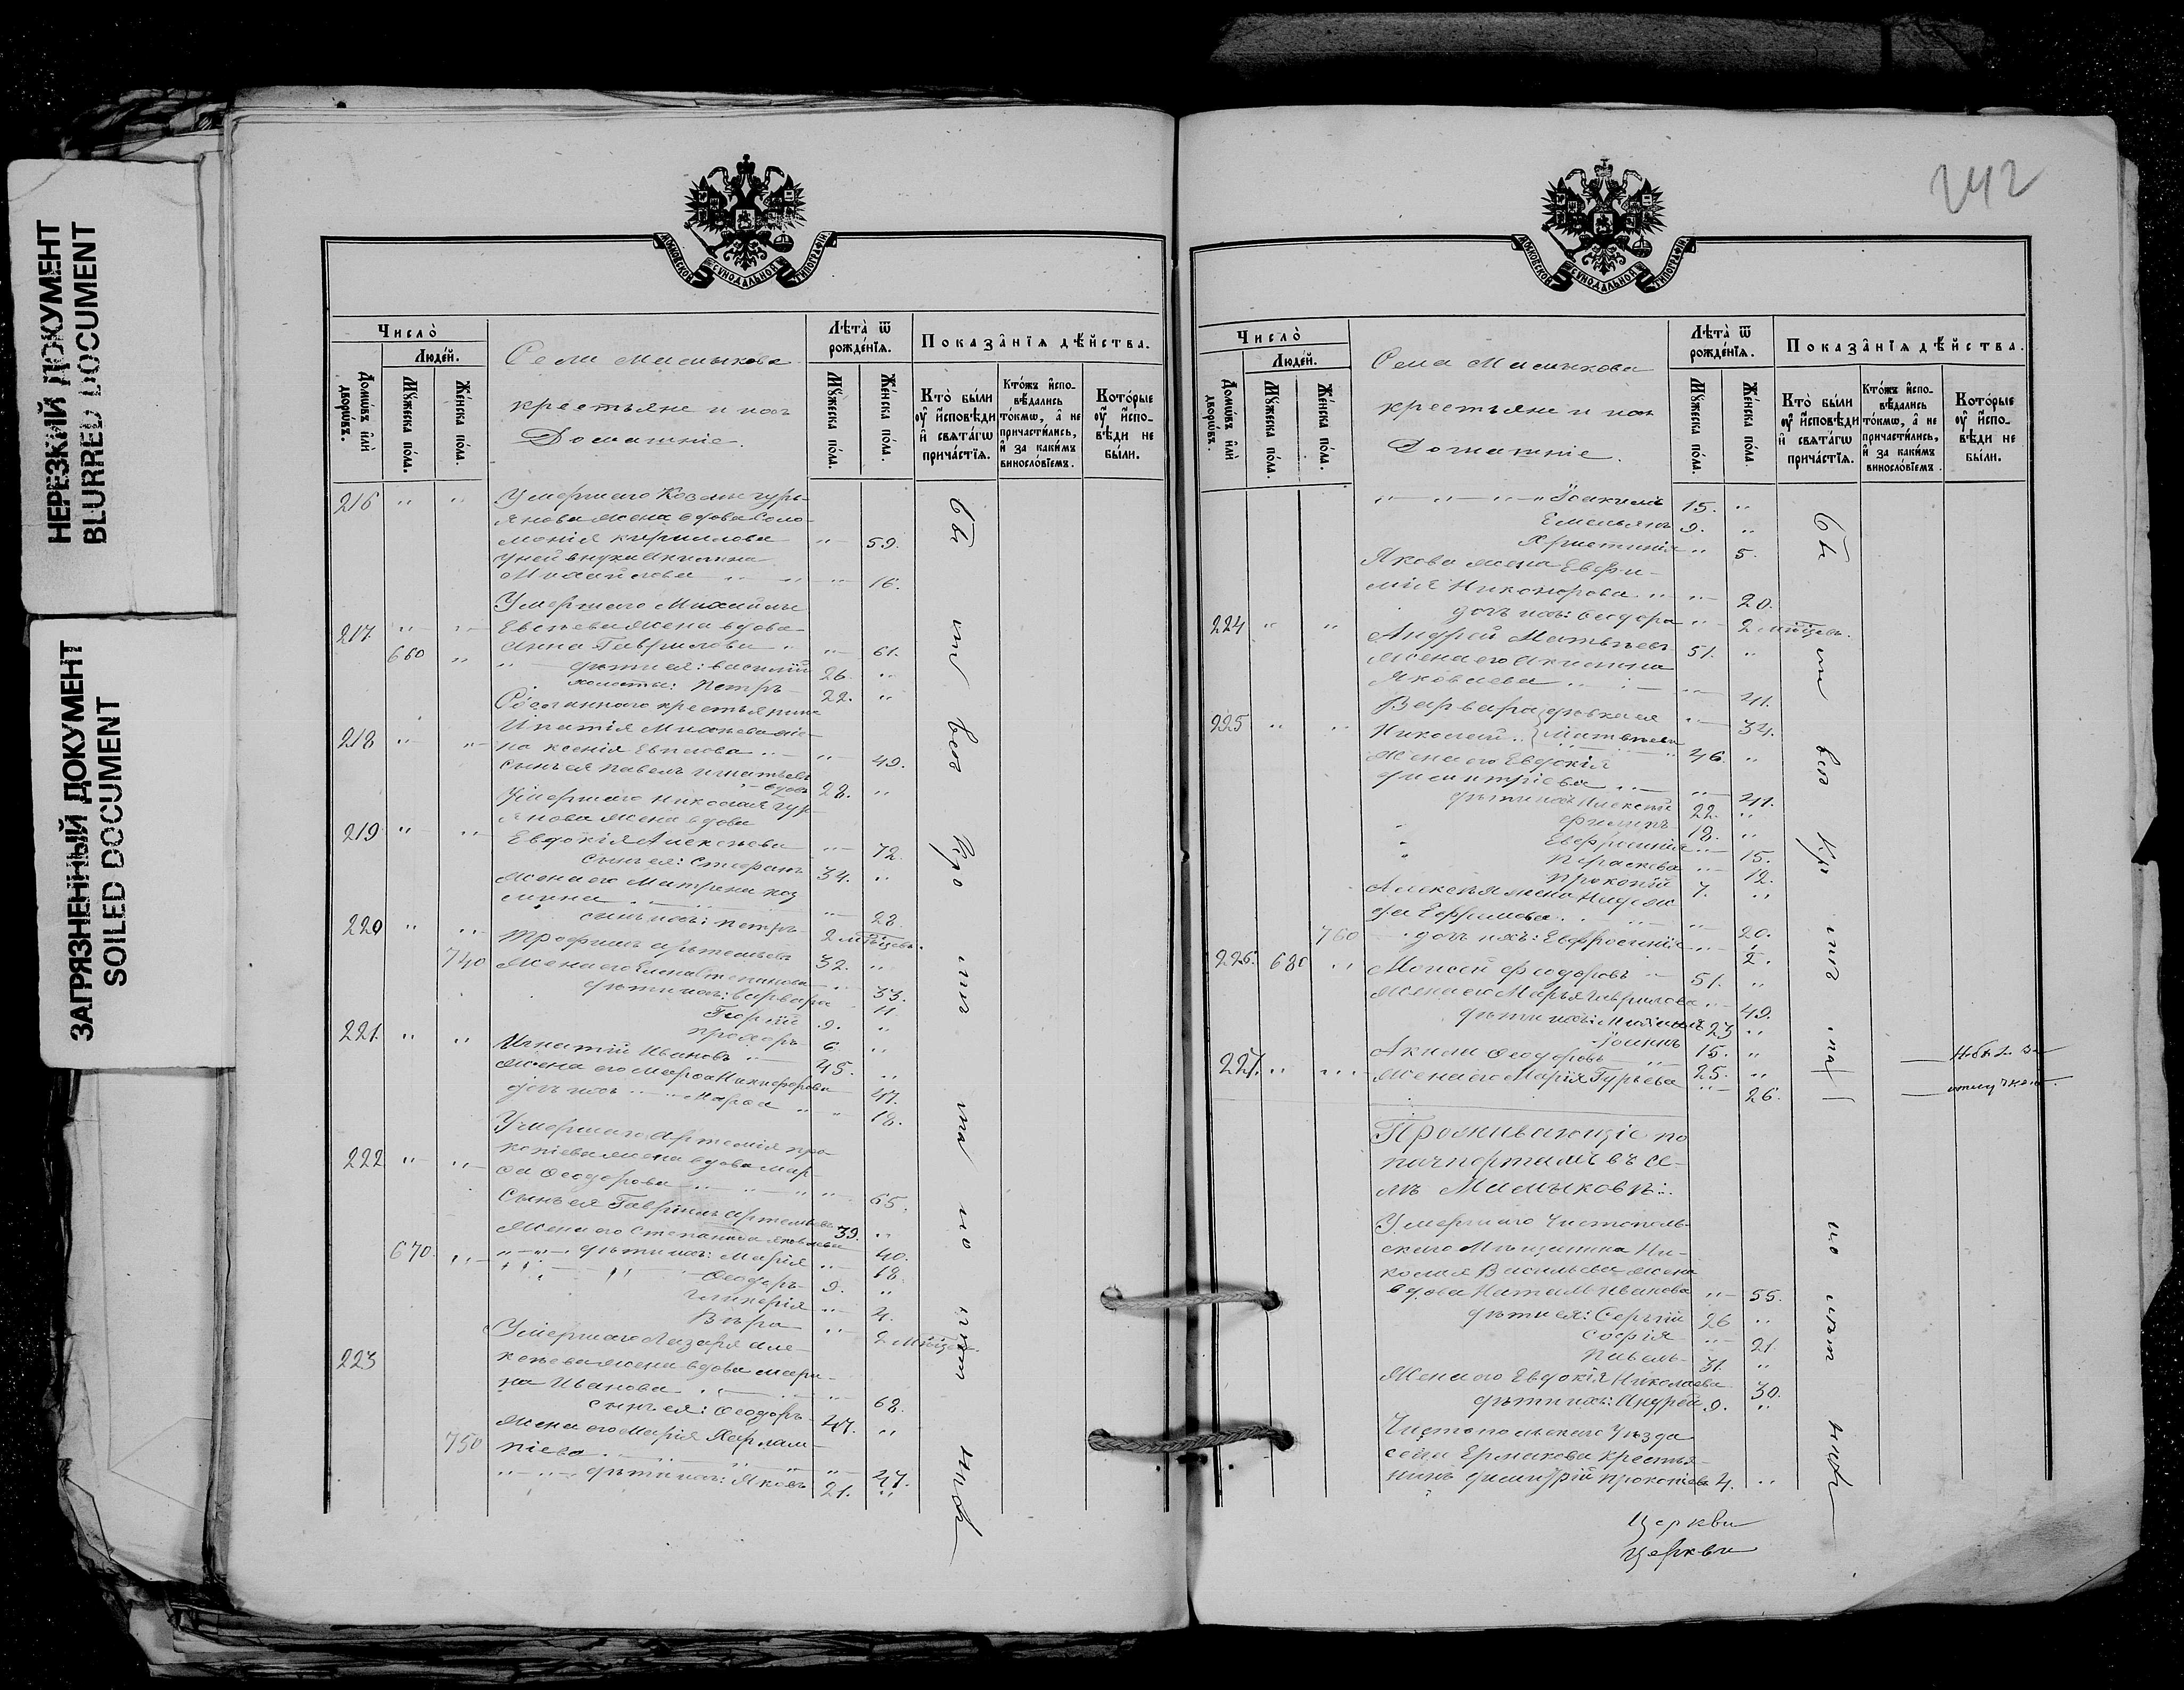 НЕРЕЗКИЙ ДОКУМЕНТ
BLURRED DOCUMENT
ЗАГРЯЗНЕННЫЙ ДОКУМЕНТ
SOILED DOCUMENT
МОСКОВСКОЙ СѴНОДАЛЬНОЙ ТИПОГРАФІИ
Число
Людей.
Домѡвъ или дворѡвъ.
Мꙋжеска пола.
Женска пола.
Села Мамыкова
крестьяне и ихъ
Домашніе.
Лѣта ѿ рожденїѧ.
Мꙋжеска пола.
Женска пола.
Показанїѧ дѣйства.
Кто были оу исповѣди и свѧтагѡ причастїѧ.
Ктожъ исповѣдались токмѡ, а не причастились, и за какимъ винословїемъ.
Которые оу исповѣди не были.
216 " " Умершаго Козмы Гурь-
янова жена вдова Соло-
монія Кириллова " 59.
У ней внука Акилина
Михайлова " 16.
Умершаго Михаила
217 " " Евсѣева жена вдова
Анна Гаврилова " 61.
660 " дѣти ея: Василій 26. "
холосты: Петръ 22. "
Сосланного крестьянина
Игнатія Михеева же-
218 " " на Ксенія Евсѣева " 49.
Сынъ ея Павелъ Игнатьевъ
вдовъ 28. "
Умершаго Николая Гур-
янова жена вдова
219 " " Евдокія Алексѣева " 72.
Сынъ ея: Стефанъ 34. "
Жена его Матрена Коз
мина " 28.
220 " " сынъ ихъ: Петръ 2 мѣсяцевъ.
Трофимъ Артемьевъ 32. "
740 Жена его Елена Степанова " 33.
дѣти ихъ: Варвара " 11.
Георгій 9. "
Прохоръ 6 "
221. " " Игнатій Ивановъ 45. "
Жена его Марѳа Никифорова " 47.
дочь ихъ Марѳа " 18.
Умершаго Артемія Про-
копіева жена вдова Мар-
222 " " ѳа Ѳеодорова " 65.
Сынъ ея Гавріилъ Артемьевъ 39. "
Жена его Степанида Яковлева " 40.
670. " дѣти ихъ: Марія " 18.
Ѳеодоръ 9. "
Гликерія " 4.
Вѣра " 2 мѣсяц.
Умершаго Лазаря Але-
223 ксѣева жена вдова Мари-
на Иванова " 68.
Сынъ ея: Ѳеодоръ 47. "
Жена его Марія Харлам-
750 піева " 47.
дѣти ихъ: Яковъ 21. "
242
МОСКОВСКОЙ СѴНОДАЛЬНОЙ ТИПОГРАФІИ
Число
Людей.
Домѡвъ или дворѡвъ.
Мꙋжеска пола.
Женска пола.
Села Мамыкова
крестьяне и ихъ
Домашніе.
Лѣта ѿ рожденїѧ.
Мꙋжеска пола.
Женска пола
Показанїѧ дѣйства.
Кто были оу исповѣди и свѧтагѡ причастїѧ.
Ктожъ исповѣдались токмѡ, а не причастились, и за какимъ винословїемъ.
Которые оу исповѣди не были.
Іоакимъ 15. "
Емельянъ 9. "
Христинія " 5.
Якова жена Евфи-
мія Никонорова " 20.
дочь ихъ: Ѳеодора " 2 мѣсяцевъ.
224 " " Андрей Матвѣевъ 51. "
Жена его Акилина
Яковлева " 41.
Варвара дѣвка " 34.
225 " " Николай Матвѣевы 46. "
Жена его Евдокія
Димитріева " 41.
дѣти ихъ Алексѣй 22. "
Филипъ 18. "
Евфросинія " 15.
Параскева " 12.
Прокопій 7. "
Алексѣя жена Надеж
да Ефимова " 20.
760 дочь ихъ: Евфросинія " 2.
226. 680 " Моисей Ѳеодоровъ 51. "
Жена его Марья Гаврилова " 49.
дѣти ихъ: 23 "
Іоаннъ 15. "
227. " " Акимъ Ѳеодоровъ 25. "
Жена его Марія Гурьева " 26.
Проживающіе по
пачпортамъ въ се-
лѣ Мамыковѣ:
Умершаго Чистополь-
скаго Мѣщанина Ни-
колая Васильева жена
вдова Наталья Иванова " 55.
дѣти ея: Сергій 26 "
Софія " 21.
Павелъ 31. "
Жена его Евдокія Николаева 30.
дѣти ихъ: Андрей 9. "
Чистопольскаго Уѣзда
села Ермакова Крестья-
нинъ Димитрій Прокопіевъ 4. "
Церкви
Церкви